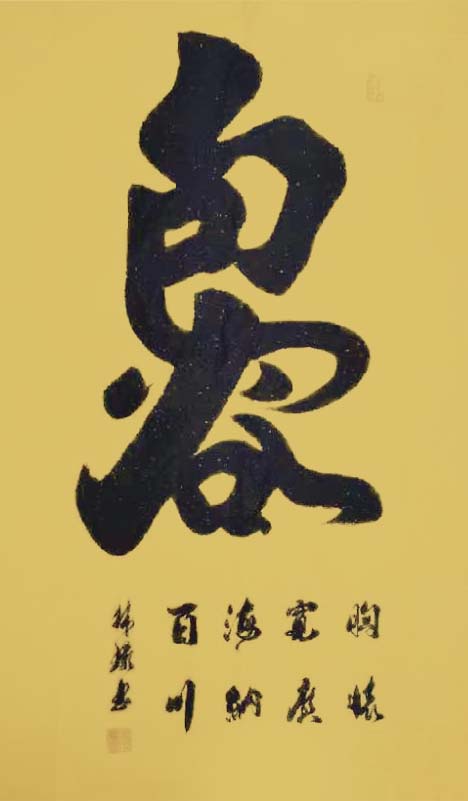 包容
胸懷
寬廣
海納
百川
书